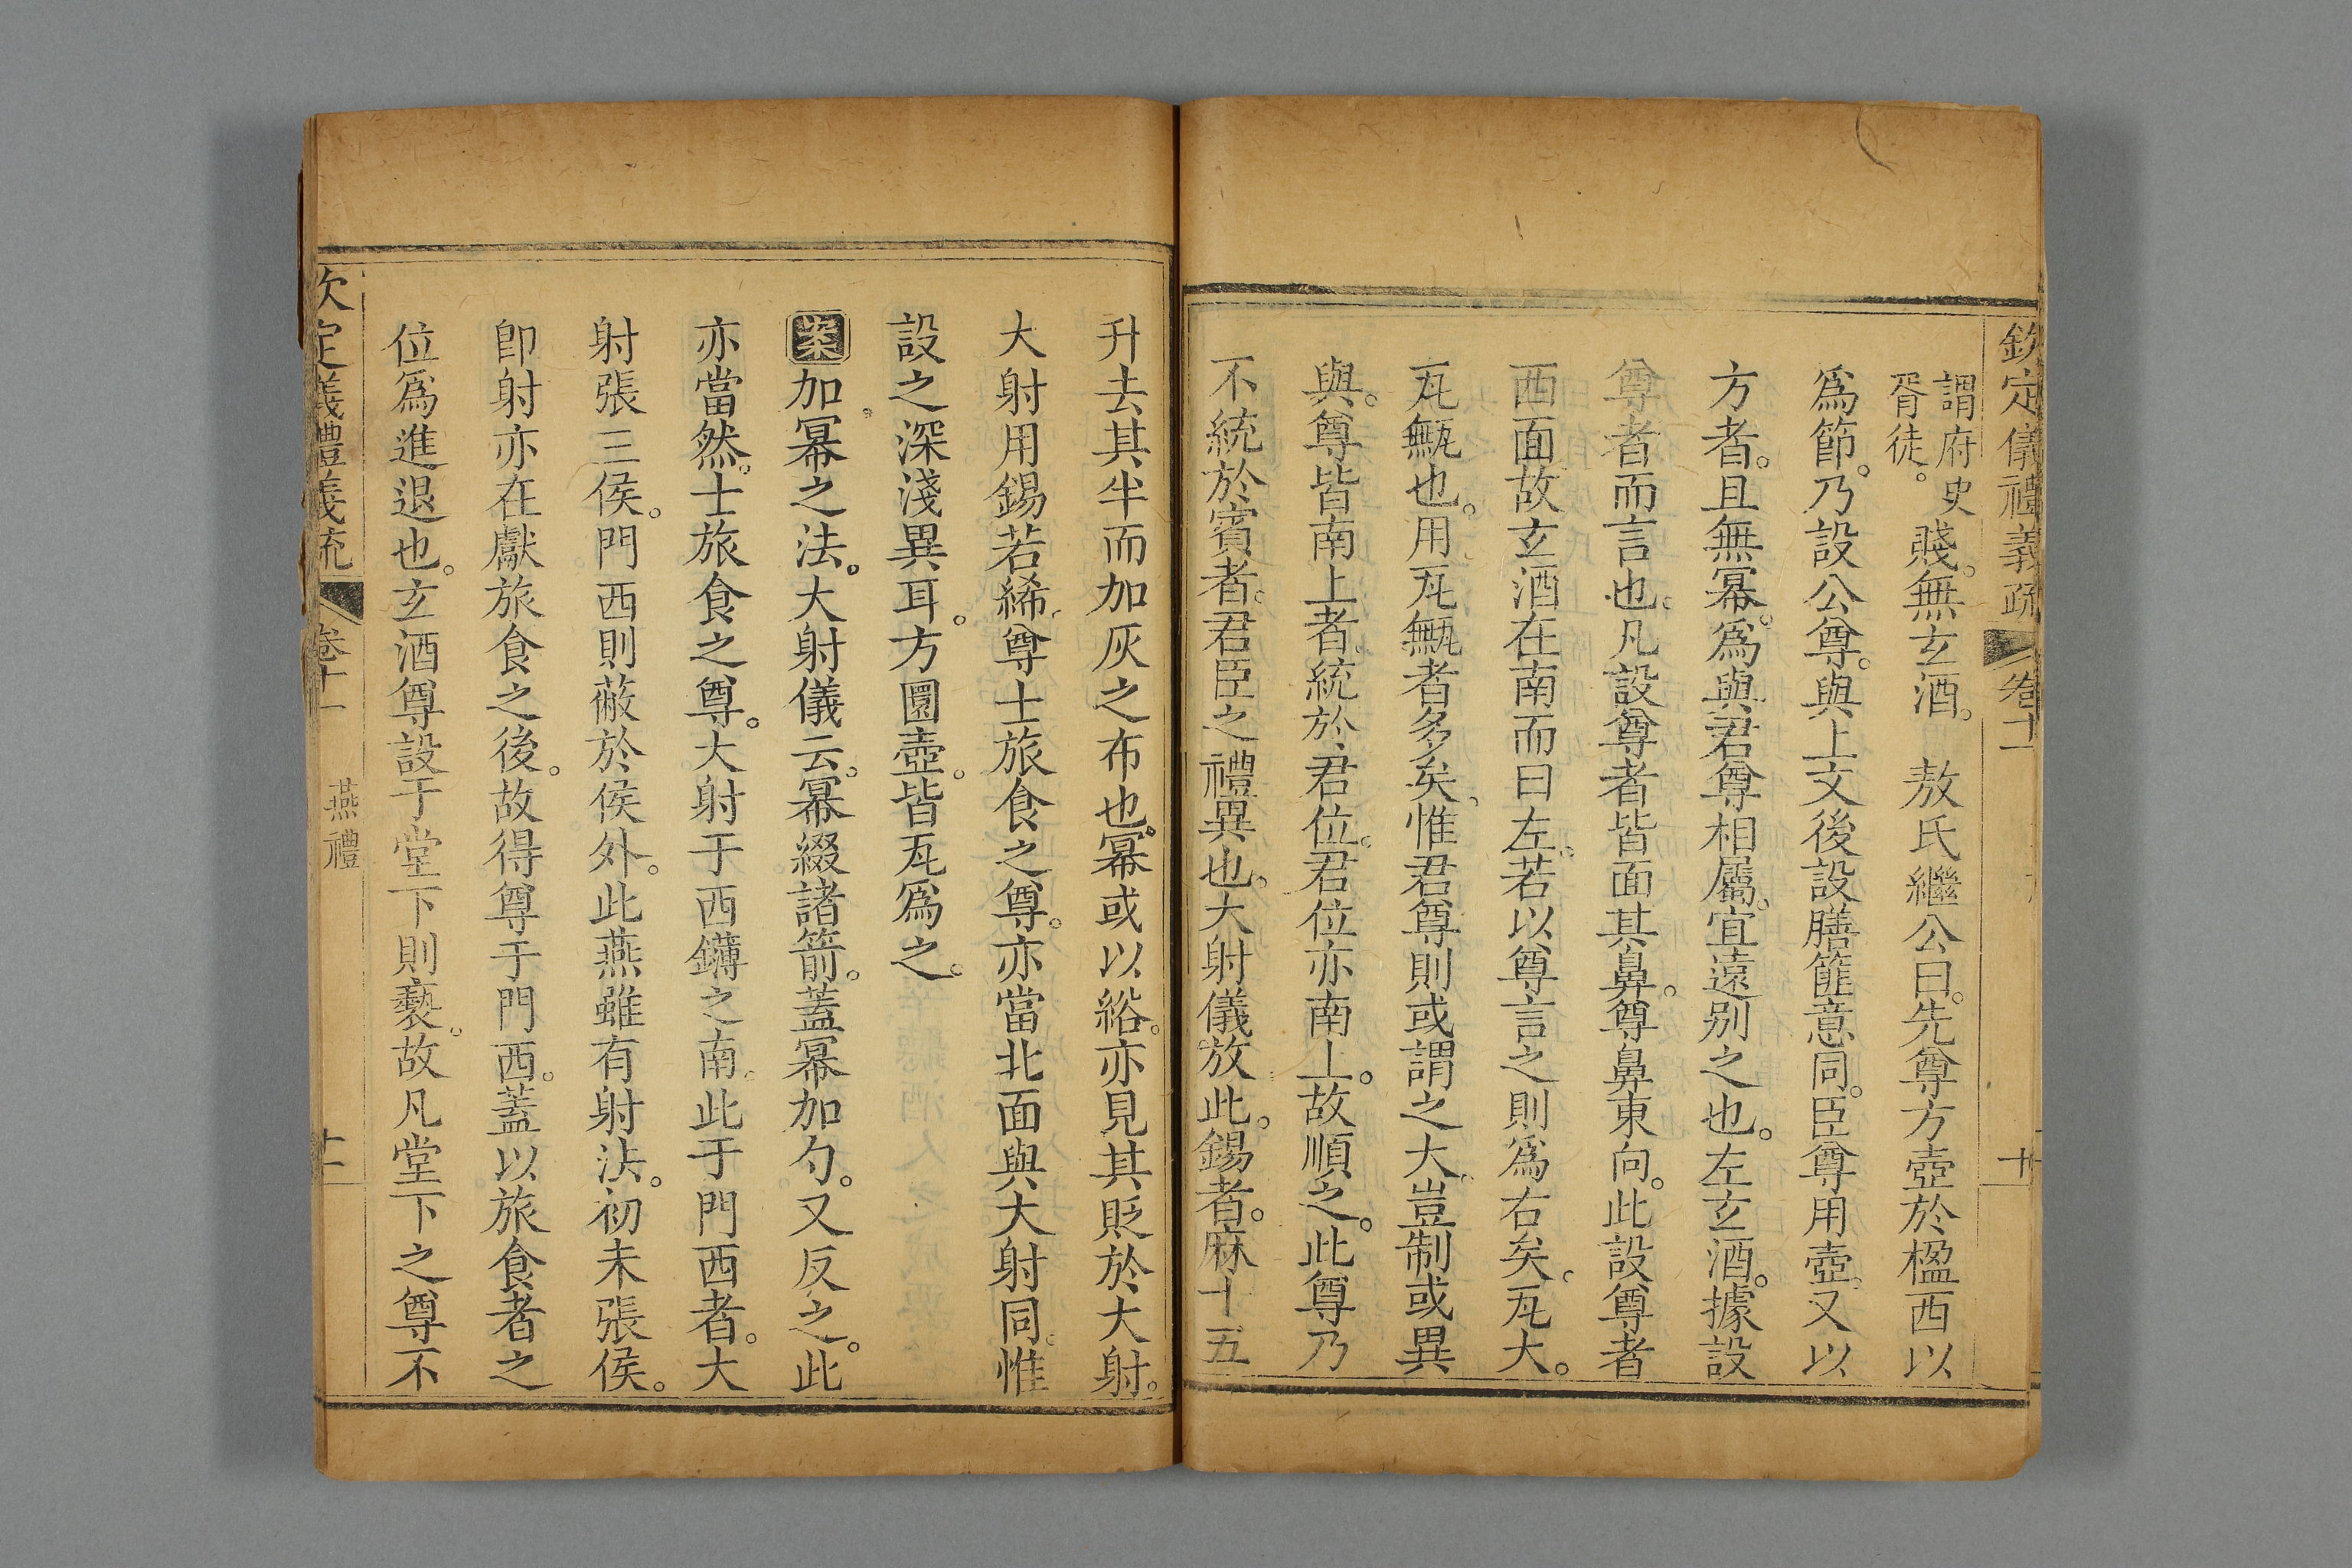 欽定儀禮義疏　卷十一　十
謂府史
胥徒。
賤。無玄酒。　敖氏繼公曰。先尊方壺於楹西以
爲節。乃設公尊。與上文後設膳篚意同。臣尊用壺。又以
方者。且無冪。爲與君尊相屬。宜遠別之也。左玄酒。據設
尊者而言也。凡設尊者皆面其鼻。尊鼻東向。此設尊者
西面故玄酒在南而曰左。若以尊言之則爲右矣。瓦大。
瓦甒也。用瓦甒者多矣、惟君尊則或謂之大。豈制或異
與。尊皆南上者。統於君位。君位亦南上。故順之。此尊乃
不統於賓者。君臣之禮異也。大射儀放此。錫者。麻十五
升去其半而加灰之布也。冪或以綌。亦見其貶於大射。
大射用錫若絺。尊士旅食之尊。亦當北面與大射同。惟
設之深淺異耳。方圜壺。皆瓦爲之。
案加冪之法。大射儀云。冪綴諸箭。蓋冪加勺。又反之。此
亦當然。士旅食之尊。大射于西鑮之南。此于門西者。大
射張三侯。門西則蔽於侯外。此燕雖有射法。初未張侯。
卽射亦在獻旅食之後。故得尊于門西。蓋以旅食者之
位爲進退也。玄酒尊設于堂下則褻。故凡堂下之尊不
欽定儀禮義疏　卷十一　燕禮　十二